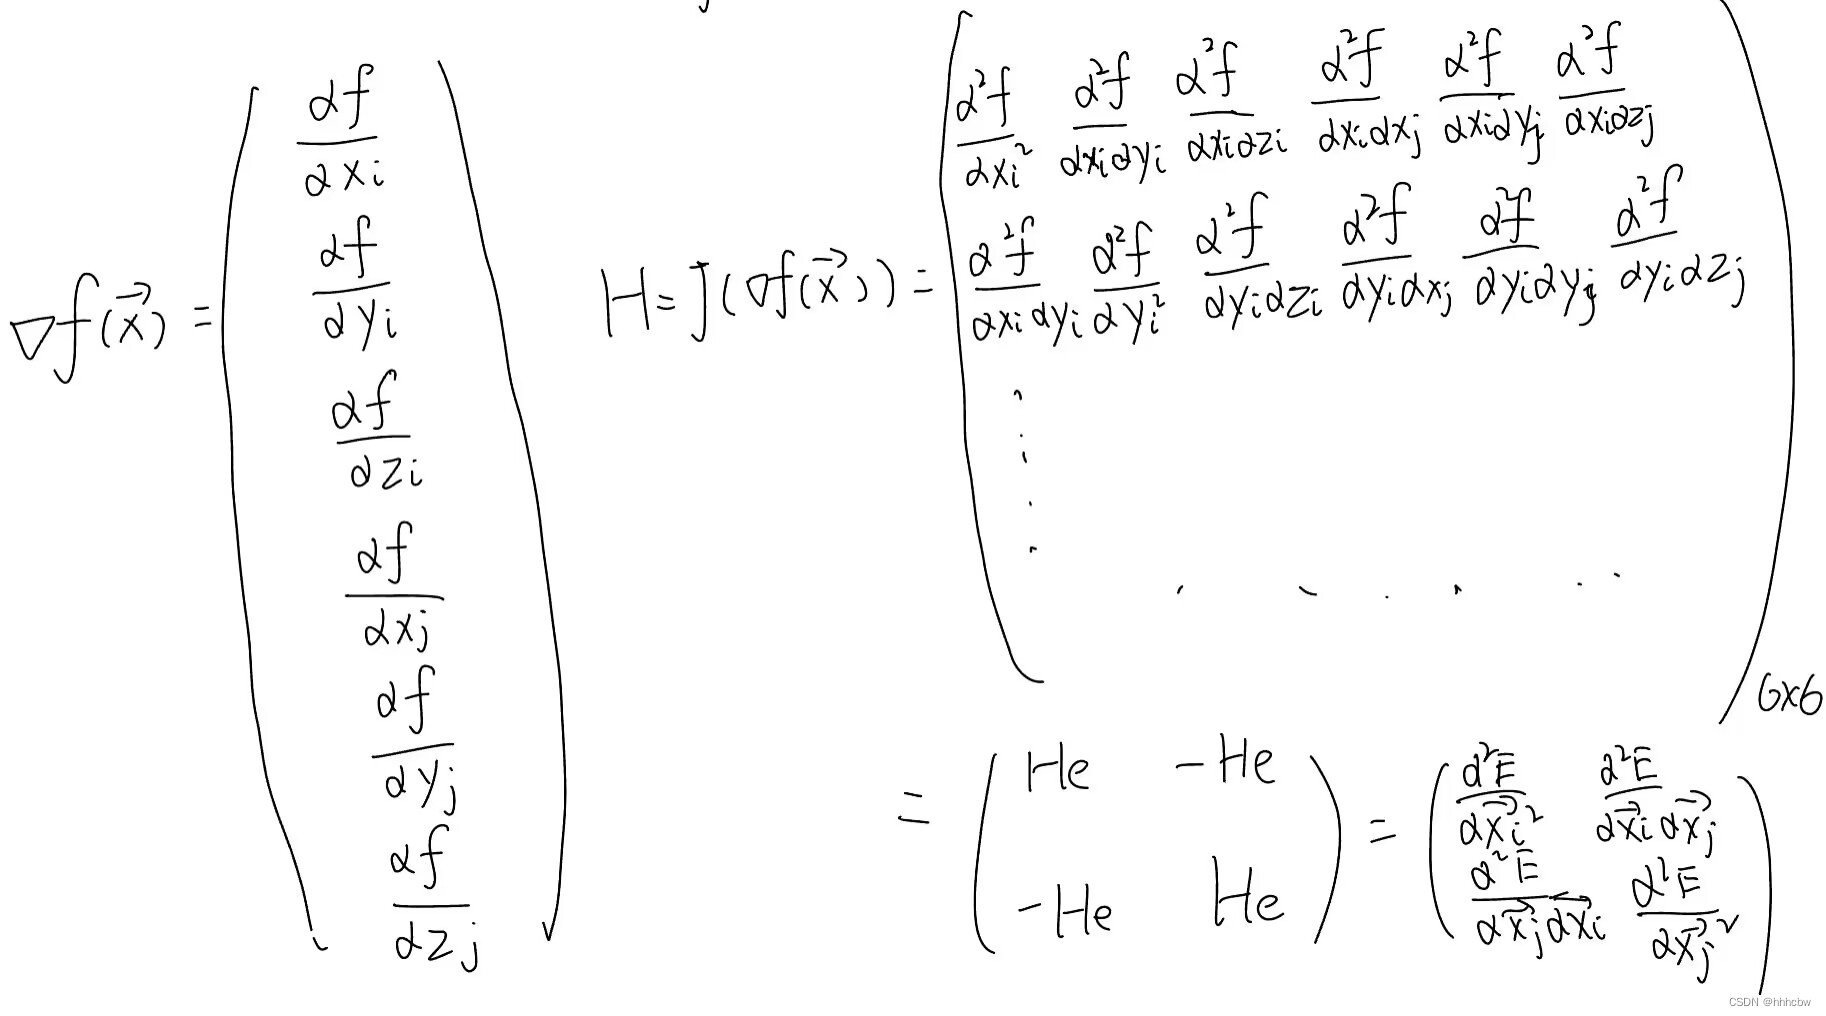 ∇f(x⃗) = ( ∂f/∂xi
∂f/∂yi
∂f/∂zi
∂f/∂xj
∂f/∂yj
∂f/∂zj )
H = J(∇f(x⃗)) = ( ∂²f/∂xi² ∂²f/∂xi∂yi ∂²f/∂xi∂zi ∂²f/∂xi∂xj ∂²f/∂xi∂yj ∂²f/∂xi∂zj
∂²f/∂xi∂yi ∂²f/∂yi² ∂²f/∂yi∂zi ∂²f/∂yi∂xj ∂²f/∂yi∂yj ∂²f/∂yi∂zj
. . . . . . . . . . ) 6x6
= ( He -He
-He He ) = ( ∂²E/∂x⃗i² ∂²E/∂x⃗i∂x⃗j
∂²E/∂x⃗j∂x⃗i ∂²E/∂x⃗j² )
CSDN @hhhcbw